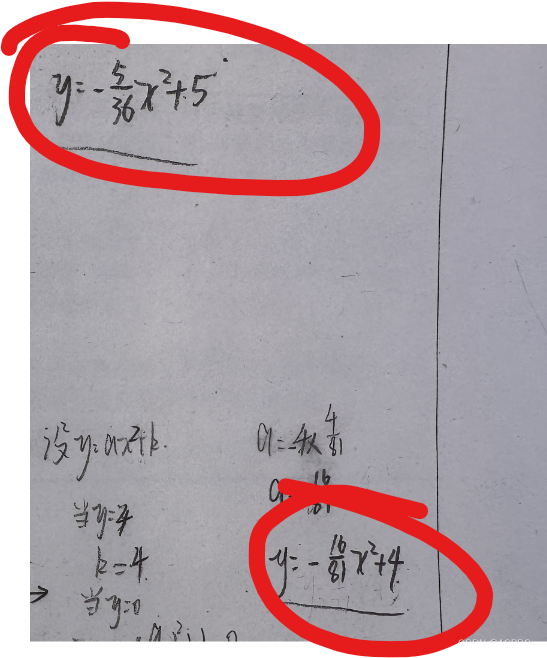 y=-5/36x²+5
设y=ax²+k.
当y=4
k=4.
当y=0
a=-4x4/81
y=-16/81x²+4